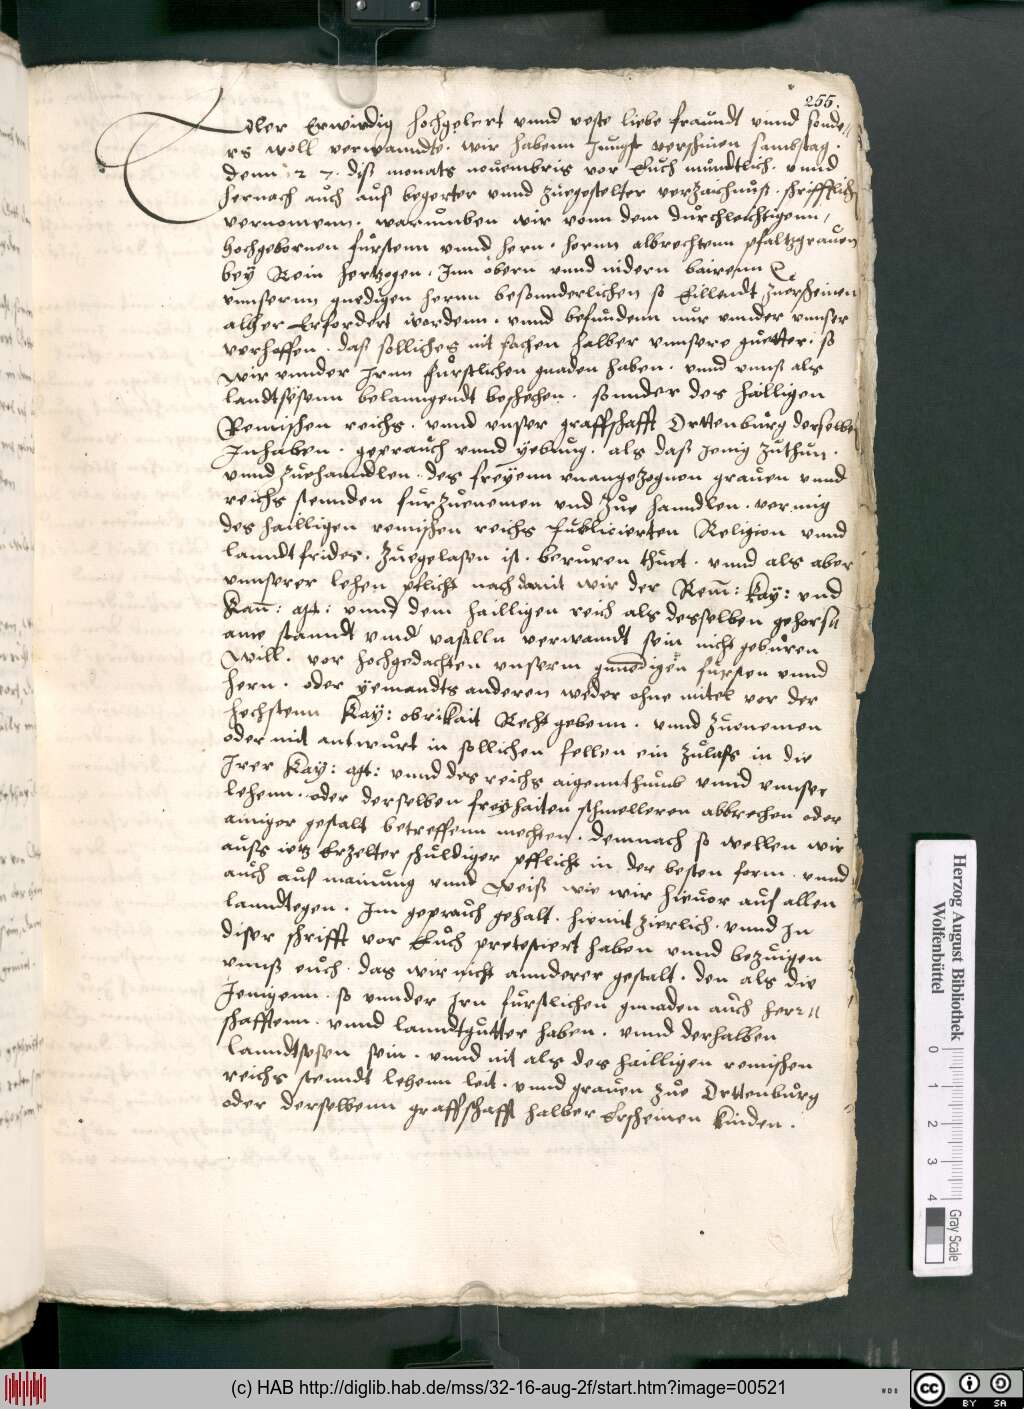 255.
Edler Erwirdig hochgelert vnnd veste liebe fraundt vnnd sonde„
rs woll verwanndte. wir habenn Jungst verschinen sambstag.
denn 27. diß monats nouembris vor Euch mundtlich. vnnd
hernach auch auf begerter vnnd zuegestelter verzaichnuß. schrifftlich
vernomenn. warumben wir vonn dem durchleichtigenn,
hochgebornen fürstenn vnnd hern. hernn albrechtenn pfaltzgrauen
bey Rein hertzogen. Inn obern vnnd nidern bairenn
vnnsernn gnedigen hernn besonnderlichen so Eillendt zuerscheinen
alher Erfordert wordenn. vnnd befundenn nur vnnder vnnser
verhoffen. daß solliches nit sachen halber vnnsere guetter. so
wir vnnder Irnn fürstlichen gnaden haben. vnnd vnnß als
landtsesenn belanngendt beschehen. sonnder des hailligen
Remischen reichs. vnnd vnser graffschafft Orttenburg derselben
Inhaben. geprauch vnnd yebung. als daß Jenig zuthun.
vnnd zuehanndlen. des freyenn vnangezognen grauen vnnd
reichs stennden furzunemen vnd zue hanndlen. vermig
des hailligen remischen reichs publicierten Religion vnnd
lanndtfrides. zuegelasen ist. beruren thuet. vnnd als aber
vnnserer lehen pflicht nach damit wir der Rem: kay: vnd
Kay: Mt: vnnd dem hailligen reich als desselben gehors„
ame standt vnnd vaselln verwandt sein nicht geburen
will. vor hochgedachten vnserm gnnedigen fursten vnnd
hern. oder yemandts anderen weder ohne mitel vor der
hechstenn Kay: obrikait Recht gebenn. vnnd zunemen
oder mit antwurt in sollichen fellen ein zulass in die
Irer Kay: Mt: vnnd des reichs aigennthumb vnnd vnnser
lehenn. oder derselben freyhaiten schmelleren abbrechen oder
ainiger gestalt betreffenn mechten. demnach so wellen wir
auss ietz Erzelter schuldiger pfflicht in der besten form. vnnd
auch auf mainung vnnd Weiß wie wir hieuor auf allen
lanndtegen. Im geprauch gehalt. hiemit zierlich. vnnd In
diser schrifft vor Euch protestiert haben vnnd bezuigen
vnnß euch. das wir nicht annderer gestalt. den als die
Jenigenn. so vnnder Irn fürstlichen gnaden auch herr„
schafftenn. vnnd lanndtgutter haben. vnnd derhalben
lanndtsesen sein. vnnd nit als des hailligen remischen
reichs stenndt lehenn leit. vnnd grauen zue Orttenburg
oder derselbenn graffschafft halber Erscheinen kinden.
Herzog August Bibliothek
Wolfenbüttel
0 1 2 3 4
Gray Scale
(c) HAB http://diglib.hab.de/mss/32-16-aug-2f/start.htm?image=00521
WDB
CC BY SA